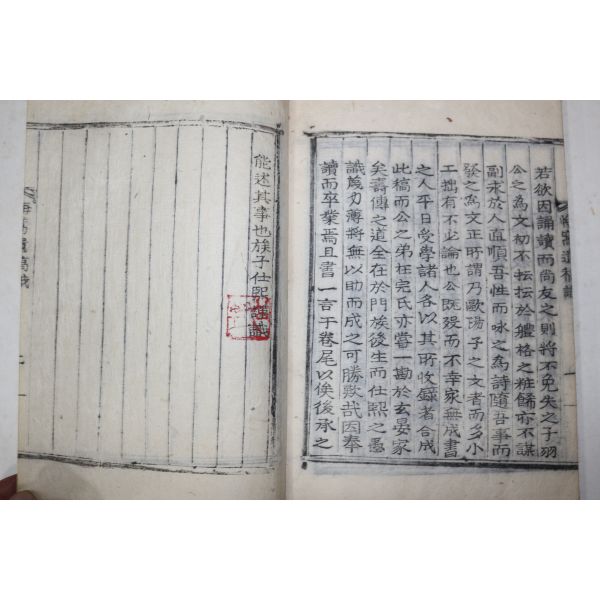 若欲因誦讀而尚友之則將不免失之子羽
公之為文初不抎抎於體格之粧餙亦不謀
副求於人直順吾性而咏之為詩隨吾事而
發之為文正所謂乃歐陽子之文者而多小
工拙有不必論也公旣歿而不幸家無成書
之人平日受學諸人各以其所收錄者合成
此稿而公之弟在完氏亦嘗一勘於玄晏家
矣壽傳之道全在於門族後生而仕熙之愚
識蔑力薄將無以助而成之可勝歎哉因奉
讀而卒業焉且書一言于卷尾以俟後承之
能述其事也族子仕熙謹識